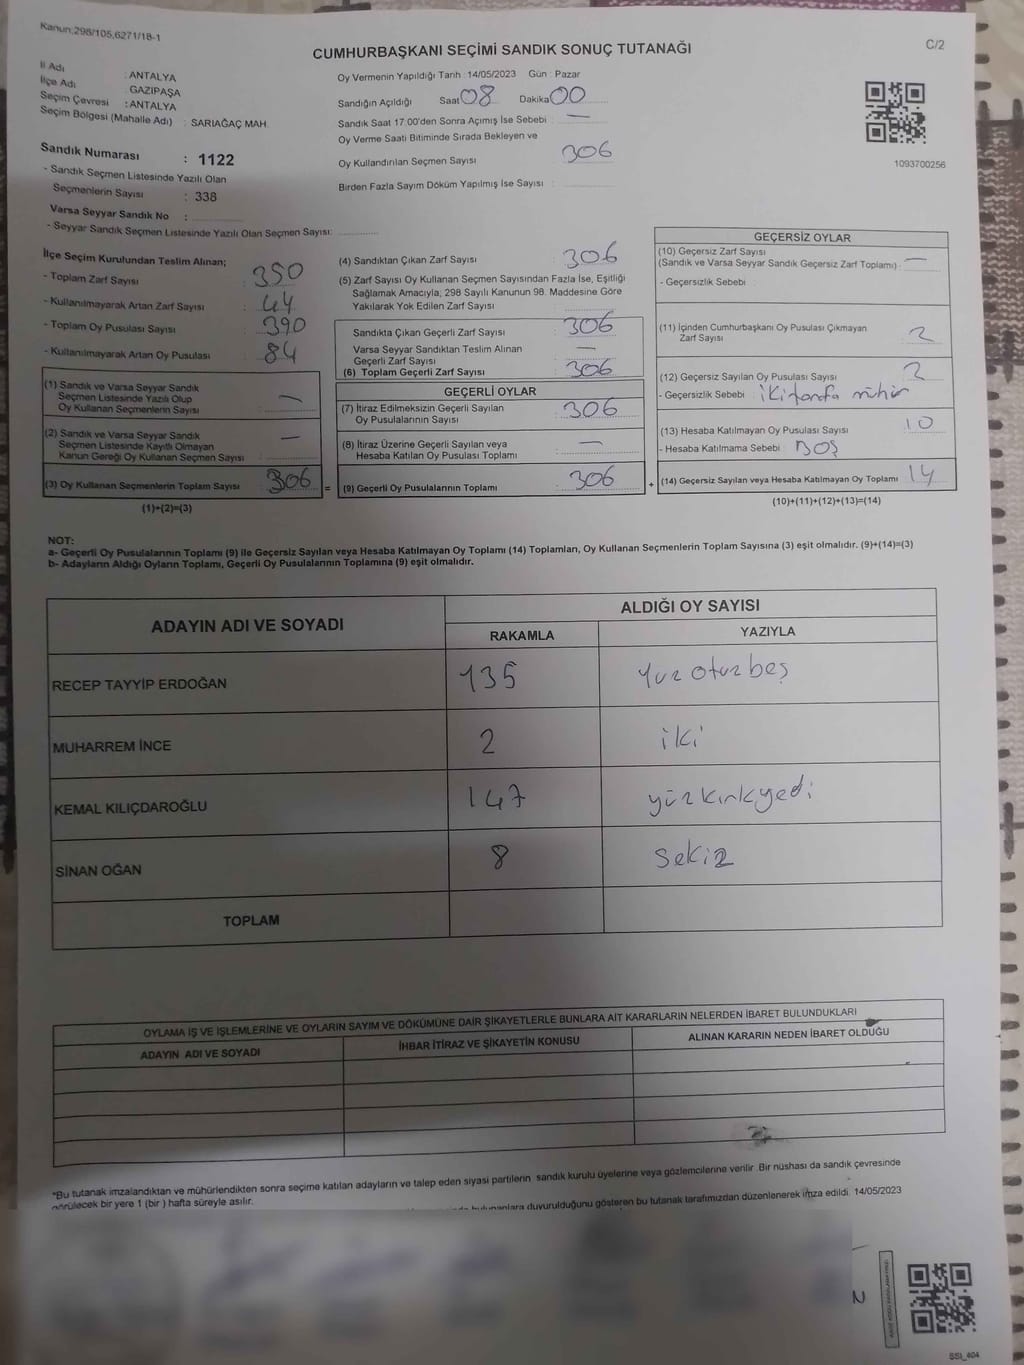 Kanun;298/105,6271/18-1
C/2
CUMHURBAŞKANI SEÇİMİ SANDIK SONUÇ TUTANAĞI
İl Adı : ANTALYA
İlçe Adı : GAZİPAŞA
Seçim Çevresi : ANTALYA
Seçim Bölgesi (Mahalle Adı) : SARIAĞAÇ MAH.
Sandık Numarası : 1122
- Sandık Seçmen Listesinde Yazılı Olan
Seçmenlerin Sayısı : 338
Varsa Seyyar Sandık No :
- Seyyar Sandık Seçmen Listesinde Yazılı Olan Seçmen Sayısı:
Oy Vermenin Yapıldığı Tarih : 14/05/2023 Gün : Pazar
Sandığın Açıldığı Saat 08 Dakika 00
Sandık Saat 17.00'den Sonra Açımış İse Sebebi : —
Oy Verme Saati Bitiminde Sırada Bekleyen ve
Oy Kullandırılan Seçmen Sayısı 306
Birden Fazla Sayım Döküm Yapılmış İse Sayısı :
1093700256
İlçe Seçim Kurulundan Teslim Alınan;
- Toplam Zarf Sayısı : 350
- Kullanılmayarak Artan Zarf Sayısı : 44
- Toplam Oy Pusulası Sayısı : 390
- Kullanılmayarak Artan Oy Pusulası : 84
(1) Sandık ve Varsa Seyyar Sandık
Seçmen Listesinde Yazılı Olup
Oy Kullanan Seçmenlerin Sayısı : —
(2) Sandık ve Varsa Seyyar Sandık
Seçmen Listesinde Kayıtlı Olmayan
Kanun Gereği Oy Kullanan Seçmen Sayısı : —
(3) Oy Kullanan Seçmenlerin Toplam Sayısı : 306
(1)+(2)=(3)
(4) Sandıktan Çıkan Zarf Sayısı : 306
(5) Zarf Sayısı Oy Kullanan Seçmen Sayısından Fazla İse, Eşitliği
Sağlamak Amacıyla; 298 Sayılı Kanunun 98. Maddesine Göre
Yakılarak Yok Edilen Zarf Sayısı
Sandıkta Çıkan Geçerli Zarf Sayısı : 306
Varsa Seyyar Sandıktan Teslim Alınan
Geçerli Zarf Sayısı : —
(6) Toplam Geçerli Zarf Sayısı : 306
GEÇERLİ OYLAR
(7) İtiraz Edilmeksizin Geçerli Sayılan
Oy Pusulalarının Sayısı : 306
(8) İtiraz Üzerine Geçerli Sayılan veya
Hesaba Katılan Oy Pusulası Toplamı : —
= (9) Geçerli Oy Pusulalarının Toplamı : 306
GEÇERSİZ OYLAR
(10) Geçersiz Zarf Sayısı
(Sandık ve Varsa Seyyar Sandık Geçersiz Zarf Toplamı) : —
- Geçersizlik Sebebi
(11) İçinden Cumhurbaşkanı Oy Pusulası Çıkmayan
Zarf Sayısı 2
(12) Geçersiz Sayılan Oy Pusulası Sayısı : 2
- Geçersizlik Sebebi : iki tarafa mühür
(13) Hesaba Katılmayan Oy Pusulası Sayısı : 10
- Hesaba Katılmama Sebebi : BOŞ
+ (14) Geçersiz Sayılan veya Hesaba Katılmayan Oy Toplamı : 14
(10)+(11)+(12)+(13)=(14)
NOT:
a- Geçerli Oy Pusulalarının Toplamı (9) ile Geçersiz Sayılan veya Hesaba Katılmayan Oy Toplamı (14) Toplamları, Oy Kullanan Seçmenlerin Toplam Sayısına (3) eşit olmalıdır. (9)+(14)=(3)
b- Adayların Aldığı Oyların Toplamı, Geçerli Oy Pusulalarının Toplamına (9) eşit olmalıdır.
ADAYIN ADI VE SOYADI
ALDIĞI OY SAYISI
RAKAMLA YAZIYLA
RECEP TAYYİP ERDOĞAN 135 Yuzotuzbeş
MUHARREM İNCE 2 iki
KEMAL KILIÇDAROĞLU 147 yüzkırkyedi
SİNAN OĞAN 8 Sekiz
TOPLAM
OYLAMA İŞ VE İŞLEMLERİNE VE OYLARIN SAYIM VE DÖKÜMÜNE DAİR ŞİKAYETLERLE BUNLARA AİT KARARLARIN NELERDEN İBARET BULUNDUKLARI
ADAYIN ADI VE SOYADI İHBAR İTİRAZ VE ŞİKAYETİN KONUSU ALINAN KARARIN NEDEN İBARET OLDUĞU
*Bu tutanak imzalandıktan ve mühürlendikten sonra seçime katılan adayların ve talep eden siyasi partilerin sandık kurulu üyelerine veya gözlemcilerine verilir. Bir nüshası da sandık çevresinde
görülecek bir yere 1 (bir) hafta süreyle asılır.
duyurulduğunu gösteren bu tutanak tarafımızdan düzenlenerek imza edildi. 14/05/2023
SSİ_404